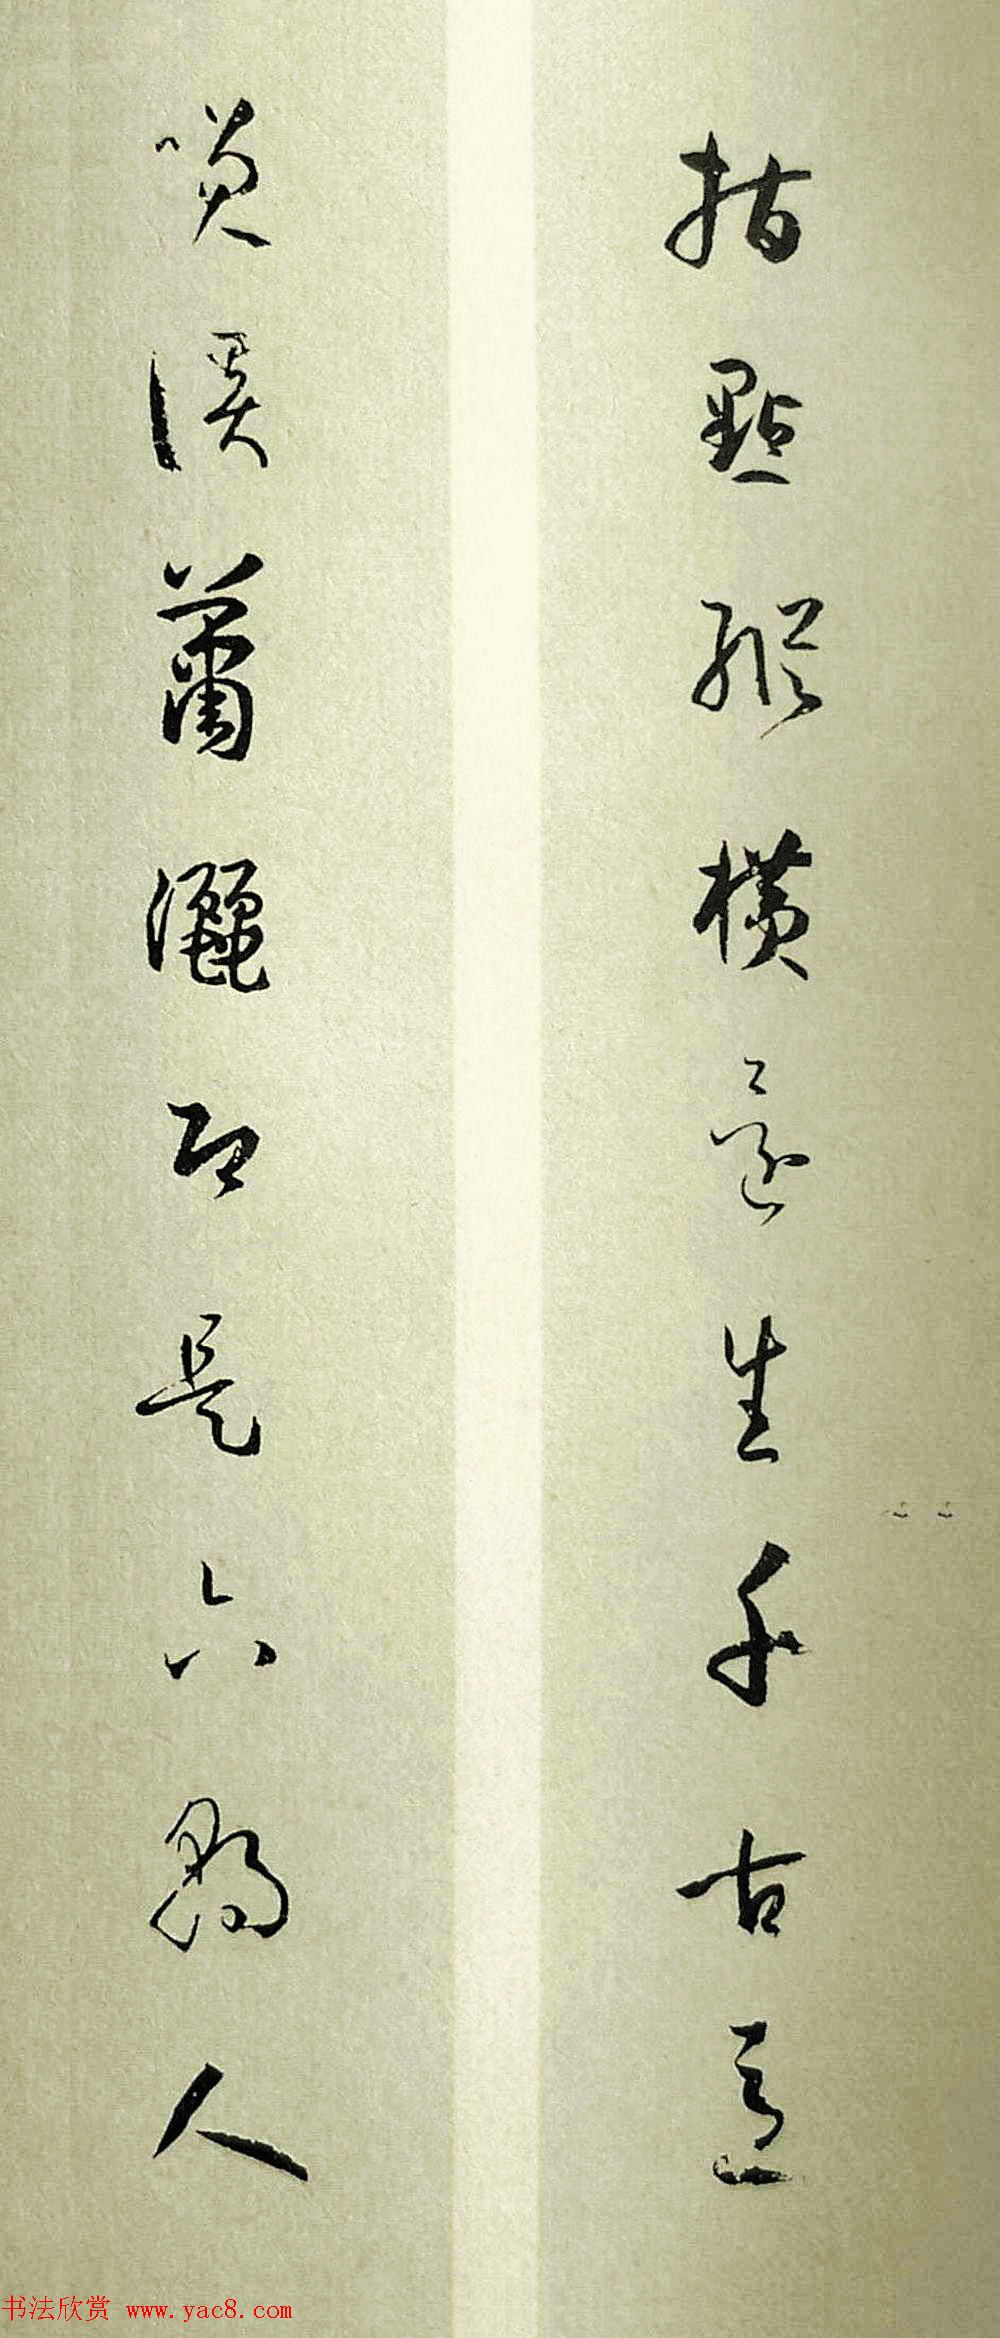 指點縱橫還生千古意
笑誤蕭灑即是六朝人
书法欣赏 www.yac8.com